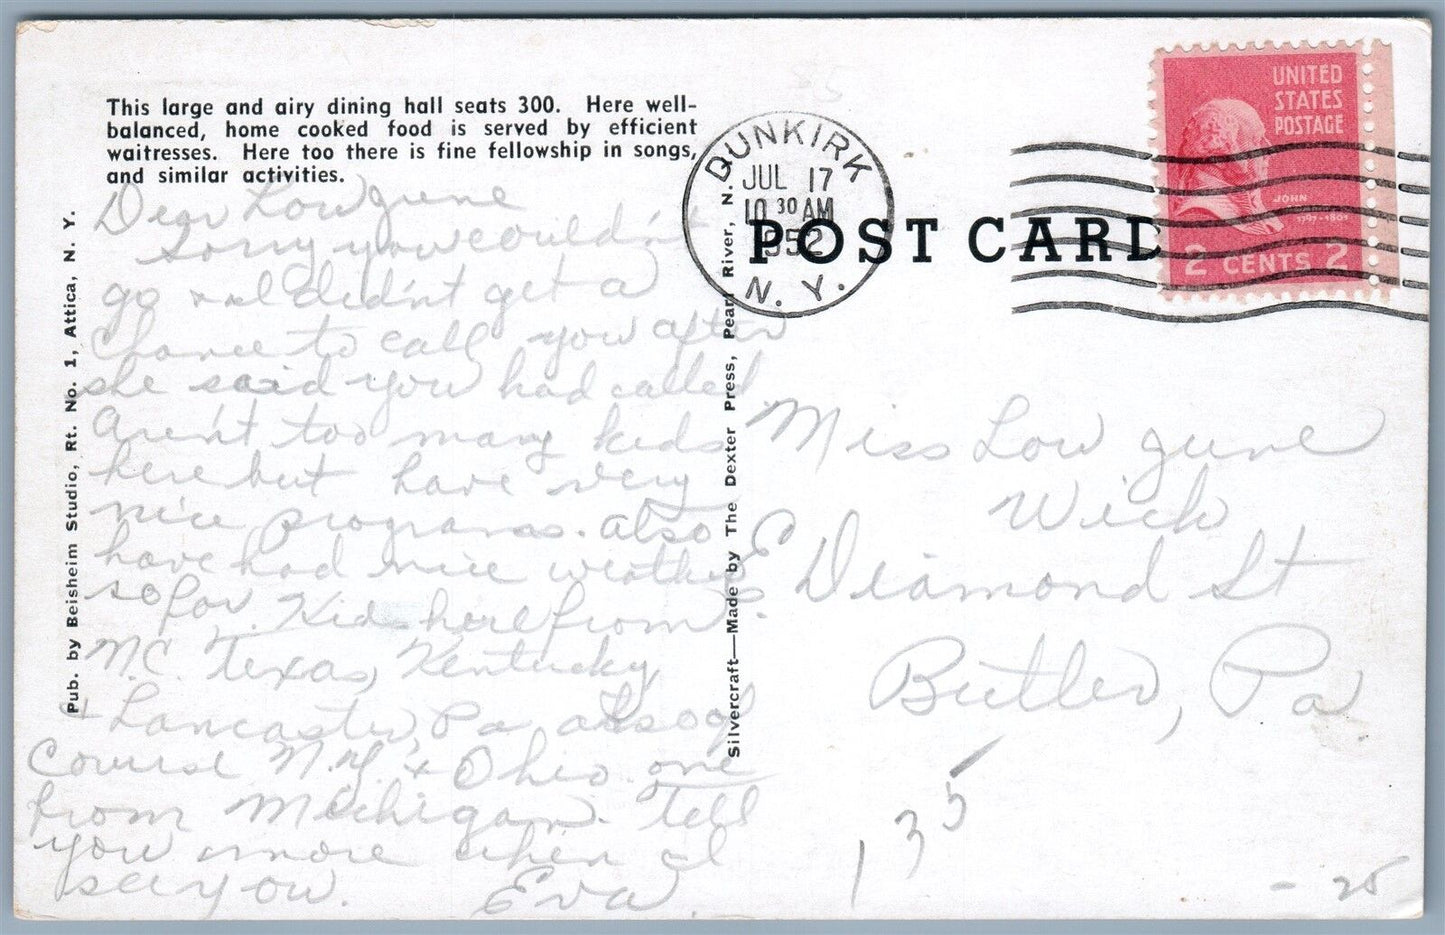 This large and airy dining hall seats 300. Here well-
balanced, home cooked food is served by efficient
waitresses. Here too there is fine fellowship in songs,
and similar activities.
Dear Low June
Sorry you couldn't
go and I didn't get a
chance to call you after
she said you had called
Aren't too many kids
here but have very
nice programs. also
have had nice weather
so far. Kids here from
N.C. Texas, Kentucky
+ Lancaster, Pa also of
course N.Y. + Ohio one
from Michigan. Tell
you more when I
see you. Eva.
Pub. by Beisheim Studio, Rt. No. 1, Attica, N. Y.
Silvercraft—Made by The Dexter Press, Pearl River, N.
DUNKIRK
JUL 17
10 30 AM
1952
N. Y.
POST CARD
UNITED
STATES
POSTAGE
JOHN
1797-1801
2 CENTS 2
Miss Low June
Wick
E Diamond St
Butler, Pa
135
- 25